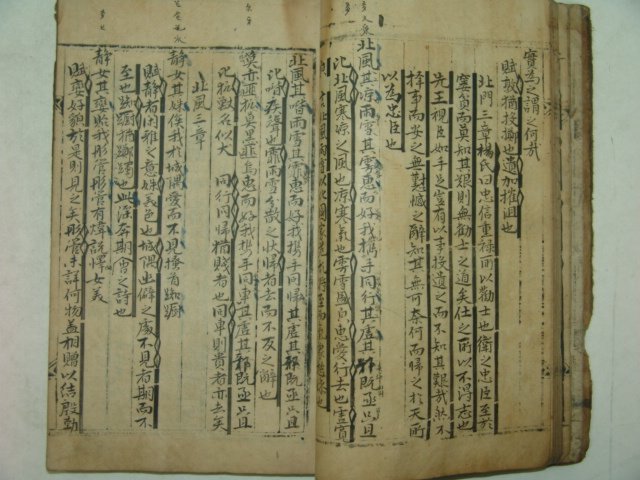 實為之謂之何哉
賦敦猶投擲也遺加摧沮也
北門三章楊氏曰忠信重祿所以勸士也衛之忠臣至於
窶貧而莫知其艱則無勸士之道矣仕之所以不得志也
先王視臣如手足豈有以事投遺之而不知其艱哉然不
擇事而安之無懟憾之辭知其無可奈何而歸之於天所
以為忠臣也
北風其凉雨雪其雱惠而好我携手同行其虛其邪既亟只且
比北風寒凉之風也凉寒氣也雱雪盛貌惠愛行去也虛寬
北風其喈雨雪其霏惠而好我携手同歸其虛其邪既亟只且
比喈疾聲也霏雨雪分散之狀歸者去而不反之辭也
莫赤匪狐莫黑匪烏惠而好我携手同車其虛其邪既亟只且
比物數名似犬 同行同歸猶賤者也同車則貴者亦去矣
北風三章
靜女其姝俟我於城隅愛而不見搔首踟躕
賦靜者閒雅之意姝美色也城隅幽僻之處不見者期而不
至也踟躕猶躑躅也此淫奔期會之詩也
靜女其孌貽我彤管彤管有煒說懌女美
賦孌好貌於是則見之矣彤管未詳何物盖相贈以結殷勤